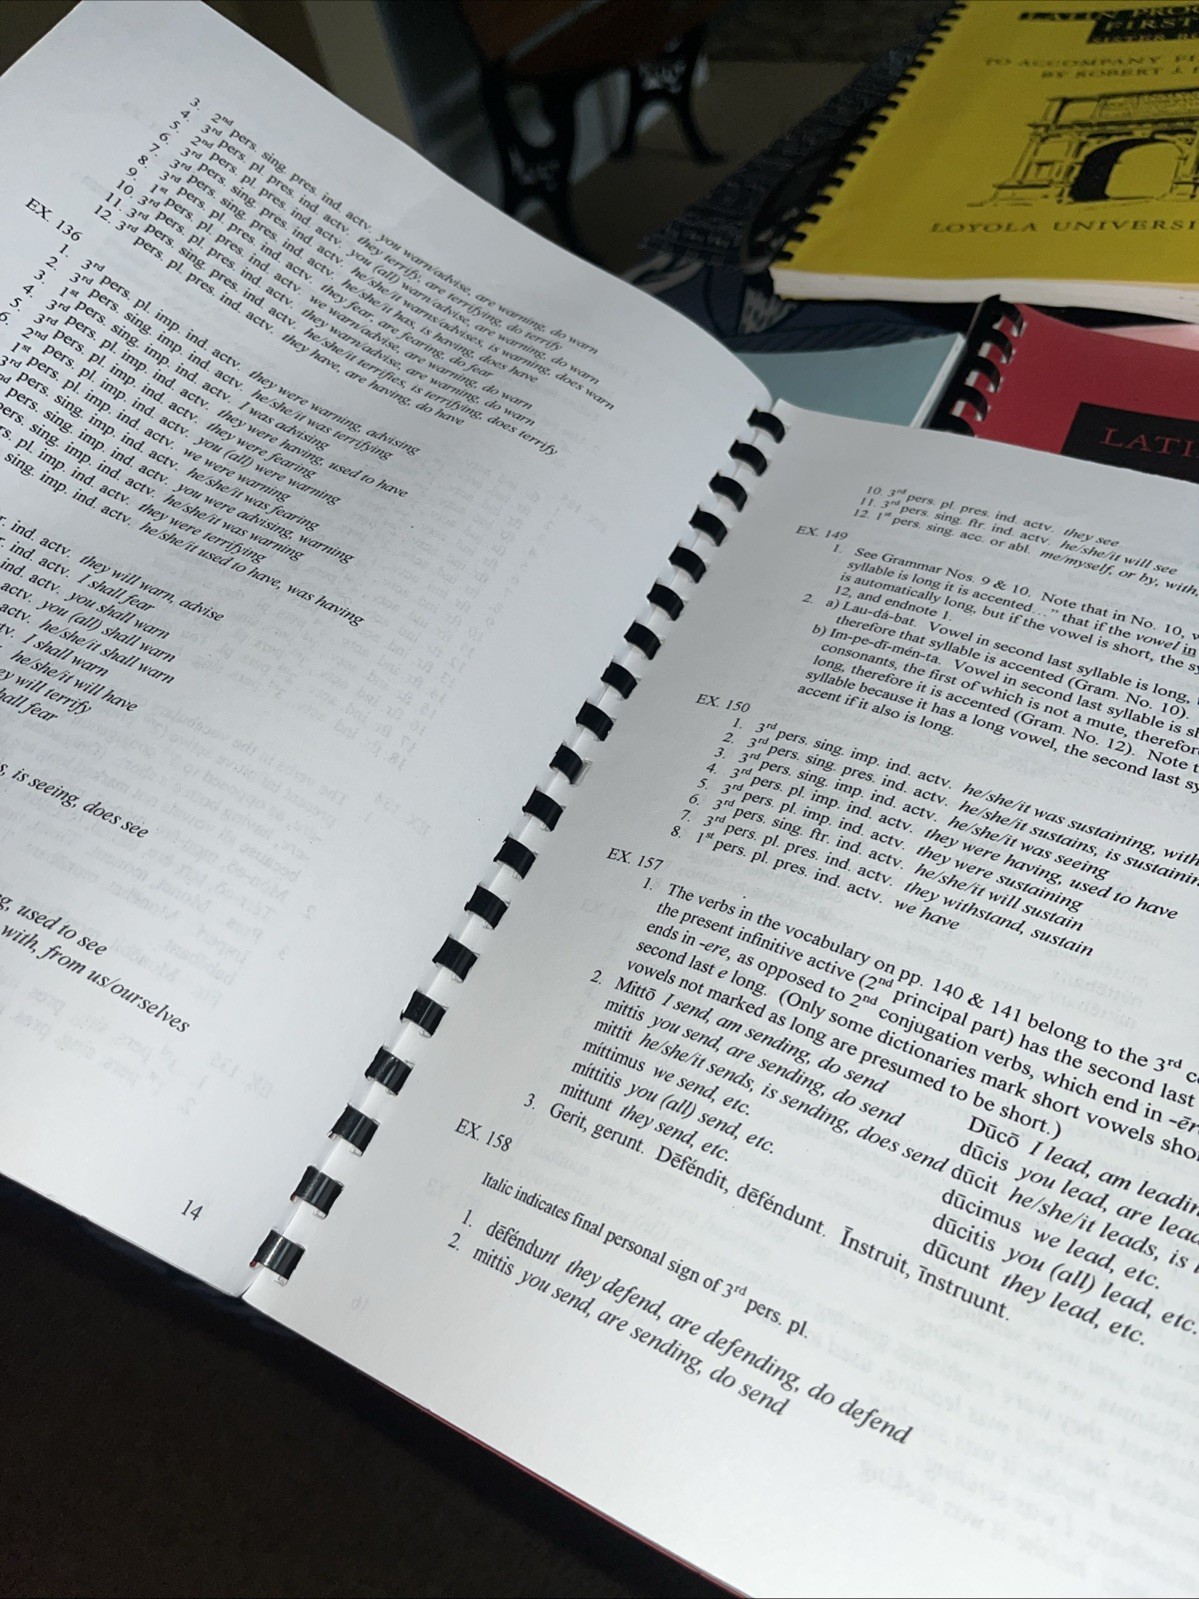 3. 2nd pers. sing. pres. ind. actv. you warn/advise, are warning, do warn
4. 3rd pers. pl. pres. ind. actv. they terrify, are terrifying, do terrify
5. 2nd pers. pl. pres. ind. actv. you (all) warn/advise, are warning, do warn
6. 3rd pers. sing. pres. ind. actv. he/she/it warns/advises, is warning, does warn
7. 3rd pers. sing. pres. ind. actv. he/she/it has, is having, does have
8. 3rd pers. pl. pres. ind. actv. they fear, are fearing, do fear
9. 1st pers. pl. pres. ind. actv. we warn/advise, are warning, do warn
10. 3rd pers. pl. pres. ind. actv. they warn/advise, are warning, do warn
11. 3rd pers. sing. pres. ind. actv. he/she/it terrifies, is terrifying, does terrify
12. 3rd pers. pl. pres. ind. actv. they have, are having, do have
EX. 136
1. 3rd pers. pl. imp. ind. actv. they were warning, advising
2. 3rd pers. sing. imp. ind. actv. he/she/it was terrifying
3. 1st pers. sing. imp. ind. actv. I was advising
4. 3rd pers. pl. imp. ind. actv. they were having, used to have
5. 3rd pers. pl. imp. ind. actv. they were fearing
6. 2nd pers. pl. imp. ind. actv. you (all) were warning
1st pers. pl. imp. ind. actv. we were warning
3rd pers. sing. imp. ind. actv. he/she/it was fearing
pers. sing. imp. ind. actv. you were advising, warning
pers. sing. imp. ind. actv. he/she/it was warning
pl. imp. ind. actv. they were terrifying
sing. imp. ind. actv. he/she/it used to have, was having
ind. actv. they will warn, advise
ind. actv. I shall fear
ind. actv. you shall warn
actv. you (all) shall warn
actv. he/she/it shall warn
I shall warn
he/she/it will have
will terrify
fear
is seeing, does see
used to see
with, from us/ourselves
14
10. 3rd pers. pl. pres. ind. actv. they see
11. 3rd pers. sing. ftr. ind. actv. he/she/it will see
12. 1st pers. sing. acc. or abl. me/myself, or by, with,
EX. 149
1. See Grammar Nos. 9 & 10. Note that in No. 10,
syllable is long it is accented…" that if the vowel in
is automatically long, but if the vowel is short, the
12, and endnote 1.
2. a) Lau-dá-bat. Vowel in second last syllable is long,
therefore that syllable is accented (Gram. No. 10).
b) Im-pe-dī-mén-ta. Vowel in second last syllable is
consonants, the first of which is not a mute,
long, therefore it is accented (Gram. No. 12). Note
syllable because it has a long vowel, the second last
accent if it also is long.
EX. 150
1. 3rd pers. sing. imp. ind. actv. he/she/it was sustaining,
2. 3rd pers. sing. pres. ind. actv. he/she/it sustains, is
3. 3rd pers. sing. imp. ind. actv. he/she/it was seeing
4. 3rd pers. pl. imp. ind. actv. they were having, used to have
5. 3rd pers. pl. imp. ind. actv. they were sustaining
6. 3rd pers. sing. ftr. ind. actv. he/she/it will sustain
7. 3rd pers. pl. pres. ind. actv. they withstand, sustain
8. 1st pers. pl. pres. ind. actv. we have
EX. 157
1. The verbs in the vocabulary on pp. 140 & 141 belong to the 3rd
the present infinitive active (2nd principal part) has the second last
ends in -ere, as opposed to 2nd conjugation verbs, which end in
second last e long. (Only some dictionaries mark short vowels
vowels not marked as long are presumed to be short.)
2. Mittō I send, am sending, do send Dūcō I lead, am
mittis you send, are sending, do send dūcis you lead, are
mittit he/she/it sends, is sending, does send dūcit he/she/it leads, is
míttimus we send, etc. dūcimus we lead, etc.
míttitis you (all) send, etc. dūcitis you (all) lead, etc.
mittunt they send, etc. dūcunt they lead, etc.
3. Gerit, gerunt. Dēféndit, dēféndunt. Īnstruit, īnstruunt.
EX. 158
Italic indicates final personal sign of 3rd pers. pl.
1. dēféndunt they defend, are defending, do defend
2. mittis you send, are sending, do send
FIRST
TO ACCOMPANY
BY ROBERT J.
LOYOLA